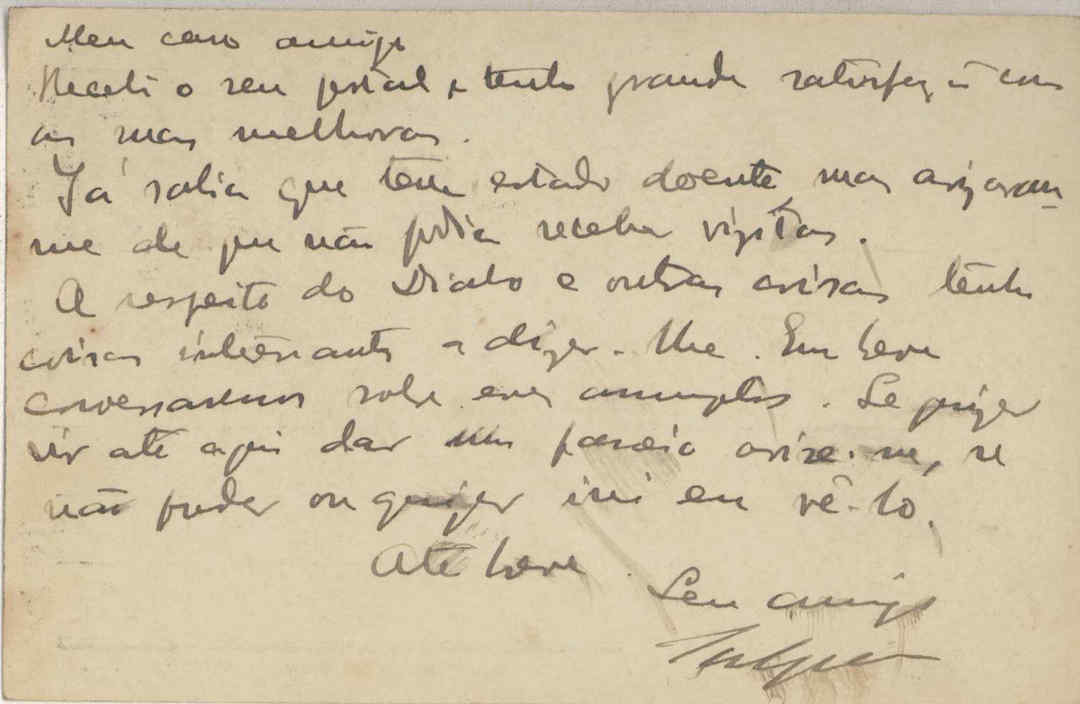 Meu caro amigo
Recebi o seu postal, tenho grande satisfação com
as suas melhoras.
Já sabia que tem estado doente, mas avizaram-
me de que não podia receber vizitas.
A respeito do Diabo e outras coisas tenho
coisas interessantes a dizer-lhe. Em breve
conversaremos sobre esses assumptos. Se quizer
vir até aqui dar um passeio avise-me, se
não puder ou quizer irei eu vê-lo.
Até breve.
Seu amigo